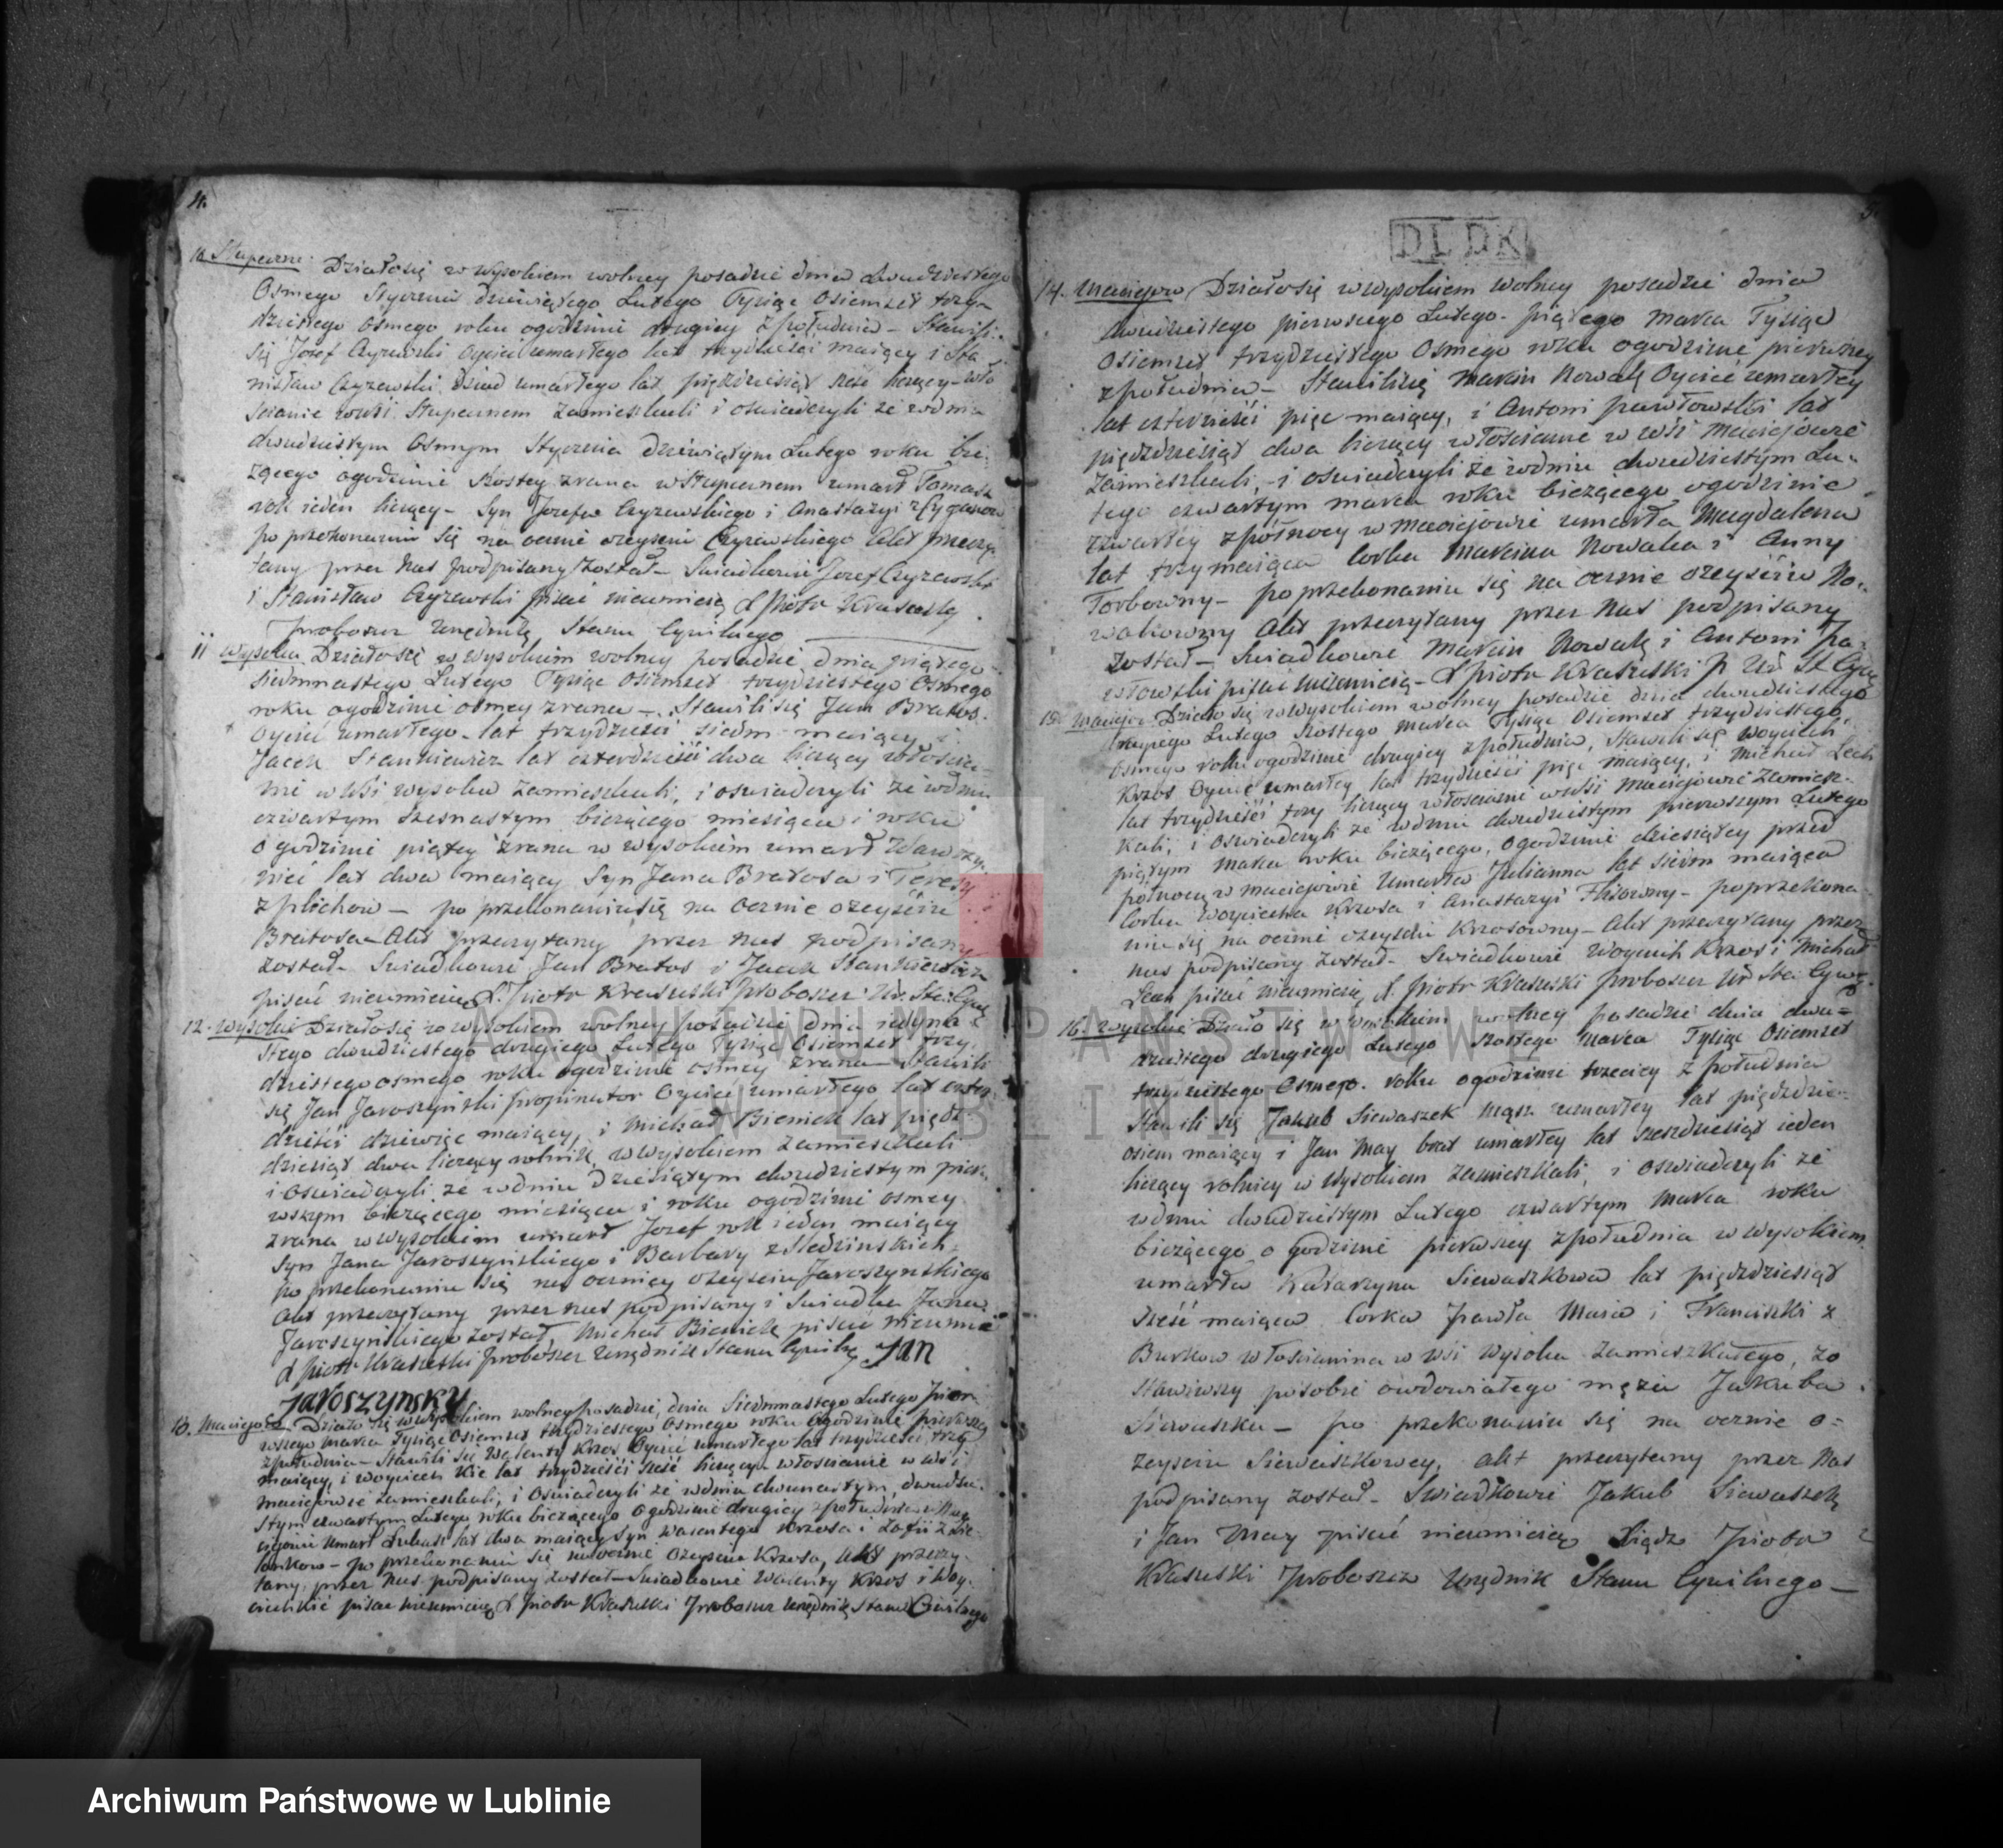 4.
10. Stupeczne. Działo się w Wysokiem wolney posadzie dnia dwudziestego
Osmego Stycznia dziewiątego Lutego Tysiąc Osiemset trzy
dziestego Osmego roku ogodzinie drugiey zpołudnia – Stawili
się Jozef Czyzewski Oyciec umarłego lat trzydzieści maiący i Sta
nisław Czyzewski Dziad umarłego lat pięćdziesiąt liczący – wło
scianie zamieszkali i oswiadczyli ze wdniu
dwudziestym Osmym Stycznia dziewiątym Lutego roku bie
zącego ogodzinie szostey zrana w Stupecznem umarł Tomasz
rok ieden liczący – Syn Jozefa Czyzewskiego i Anastazyi
po przekonaniu się na ocznie o zeysciu Czyzewskiego Akt przeczy
tany przez Nas podpisany został – Swiadkowie Jozef Czyzewski
i Stanisław Czyzewski pisać nieumieią X Piotr Krasuski
Proboszcz Urzędnik Stanu Cywilnego
11 Wysokie Działo się w Wysokiem wolney posadzie dnia piątego
Siedmnastego Lutego Tysiąc Osiemset trzydziestego Osmego
roku ogodzinie osmey zrana – Stawili się Jan Bratos
Oyciec umarłego lat trzydzieści siedm maiący i
Jacek Stankiewicz lat czterdzieści dwa liczący włoscia
nie w Wsi wysokie zamieszkali, i oswiadczyli ze wdniu
czwartym szesnastym biezącego miesiąca i roku
ogodzinie piątey zrana w wysokiem umarł Wawrzy
niec lat dwa maiący Syn Jana Bratosa i Teresy
z Plichow – po przekonaniu się na ocznie o zeysciu
Bratosa – Akt przeczytany przez nas podpisany
został – Swiadkowie Jan Bratos i Jacek Stankiewicz
pisać nieumieią X. Piotr Krasuski Proboszcz Ur. Sta: Cywil
12. Wysokie Działo się w Wysokiem wolney posadzie dnia iedyna
stego dwudziestego drugiego Lutego Tysiąc Osiemset trzy
dziestego osmego roku ogodzinie osmey zrana – Stawili
się Jan Jaroszyński propinator Oyciec umarłego lat czter
dzieści dziewięć maiący, i Michał Bieniek lat pięćdz
dziesiąt dwa liczący rolnik, w wysokiem zamieszkali
i oswiadczyli ze wdniu dziesiątym dwudziestym pier
wszym biezącego miesiąca i roku ogodzinie osmey
zrana w wysokiem umarł Jozef rok ieden maiący
Syn Jana Jaroszyńskiego i Barbary z Sledzinskich
po przekonaniu się na oczniey o zeysciu Jaroszynskiego
Akt przeczytany przez nas podpisany i Swiadka Jana
Jaroszyńskiego został, Michał Bieniek pisać nieumie
X Piotr Krasuski Proboszcz Urzędnik Stanu Cywilne Jan
Jaroszynsky
13. Macieiow Działo się w wysokiem wolney posadzie, dnia Siedmnastego Lutego Pier
wszego Marca Tysiąc Osiemset trzydziestego Osmego roku ogodzinie pierwszey
zpołudnia – Stawili się Walenty Krzos Oyciec umarłego lat trzydzieści trzy
maiący, i Woyciech Kić lat trzydzieści sześć liczący włoscianie w wsi
Macieiowie zamieszkali, i oswiadczyli ze wdniu dwunastym, dwudzie
stym czwartym Lutego roku biezącego ogodzinie drugiey zpołudnia w Ma
cieiowie umarł Łukasz lat dwa maiący Syn Walentego Krzosa i Zofii z
po przekonaniu się naocznie o zeysciu Krzosa, Akt przeczy
tany przez Nas podpisany został – Swiadkowie Walenty Krzos i Woy
ciech Kić pisać nieumieią X Piotr Krasuski Proboszcz Urzędnik Stanu Cywilnego
DLDK
14. Macieiow Działo się w wysokiem wolney posadzie dnia
dwudziestego pierwszego Lutego. piątego Marca Tysiąc
Osiemset trzydziestego Osmego roku ogodzinie pierwszey
zpołudnia – Stawili się Marcin Nowak Oyciec umarłey
lat czterdzieści pięc maiący, i Antoni Pawłowski lat
pięćdziesiąt dwa liczący włoscianie w wsi Macieiowie
Zamieszkali, i oswiadczyli ze wdniu dwudziestym Lu
tego czwartym marca roku biezącego ogodzinie
czwartey zpółnocy w Macieiowie umarła Magdalena
lat trzy maiąca Corka Marcina Nowaka i Anny
Torbowny – po przekonaniu się na ocznie o zeysciu No
wakowny Akt przeczytany przez Nas podpisany
został – Swiadkowie Marcin Nowak i Antoni Pa
włowski pisać nieumieią – X Piotr Krasuski P. Ur. St. Cywi
15. Macieiow Działo się w wysokiem wolney posadzie dnia dwudziestego
Lutego szostego Marca Tysiąc Osiemset trzydziestego
Osmego roku ogodzinie drugiey zpołudnia, Stawili się Woyciech
Krzos Oyciec umarłey lat trzydzieści pięc maiący, i Michał Lech
lat trzydzieści trzy liczący włoscianie w wsi Macieiowie zamiesz
kali, i oswiadczyli ze wdniu dwudziestym pierwszym Lutego
piątym marca roku biezącego, ogodzinie dziesiątey przed
północą w macieiowie Umarła Julianna lat siedm maiąca
Corka Woyciecha Krzosa i Anastazyi Flisowny – po przekona
niu się na ocznie o zeysciu Krzosowny – Akt przeczytany przez
nas podpisany został – Swiadkowie Woyciech Krzos i Michał
Lech pisać nieumieią, X. Piotr Krasuski Proboszcz Ur Sta: Cywil
16. Wysokie Działo się w Wysokiem wolney posadzie dnia dwu=
dziestego drugiego Lutego szostego Marca Tysiąc Osiemset
trzydziestego Osmego. roku ogodzinie trzeciey z południa
Stawili się Jakub Siewaszek Mąż umarłey lat pięćdzie
osiem maiący i Jan May brat umarłey lat sześćdziesiąt ieden
liczący rolnicy w Wysokiem zamieszkali, i oswiadczyli ze
wdniu dwudziestym Lutego czwartym Marca roku
biezącego o godzinie pierwszey zpołudnia w Wysokiem
umarła Katarzyna Siewaszkowa lat pięćdziesiąt
sześć maiąca Corka Pawła Maia i Franciszki z
Burkow włoscianina w wsi Wysokie zamieszkałego, zo
stawiwszy posobie owdowiałego męza Jakuba
Siewaszka – po przekonaniu się na ocznie o=
zeysciu Siewaszkowey, akt przeczytany przez Nas
podpisany został – Swiadkowie Jakub Siewaszek
i Jan May pisać nieumieią Xiądz Piotr
Krasuski Proboszcz Urzędnik Stanu Cywilnego –
ARCHIWUM PAŃSTWOWE
W LUBLINIE
Archiwum Państwowe w Lublinie